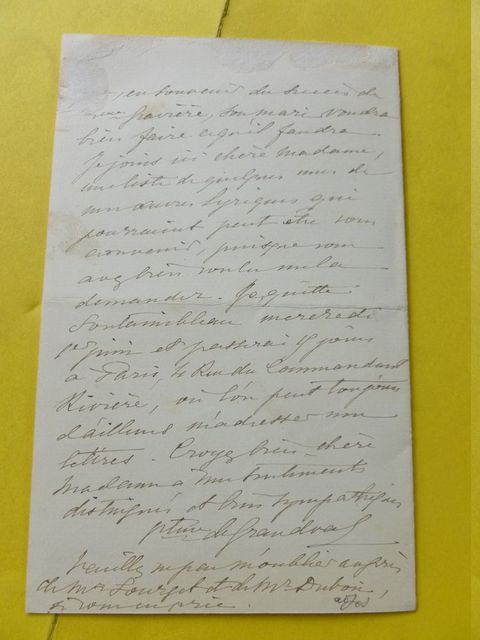 en souvenir du succès de
Mme Favière, son mari voudra
bien faire ce qu'il faudra.
Je joins ici chère Madame,
une liste de quelques unes de
mes œuvres lyriques qui
pourraient peut être vous
convenir, puisque vous
avez bien voulu me la
demander. Je quitte
Fontainebleau mercredi
1er juin et passerai 15 jours
à Paris, Rue du Commandant
Rivière, où l'on peut toujours
d'ailleurs m'adresser mes
lettres. Croyez bien, chère
Madame à mes sentiments
distingués et très sympathiques
Vtesse de Grandval
Veuillez ne pas m'oublier auprès
de Mr Sourget et de Mr Dubois,
si vous en prie.